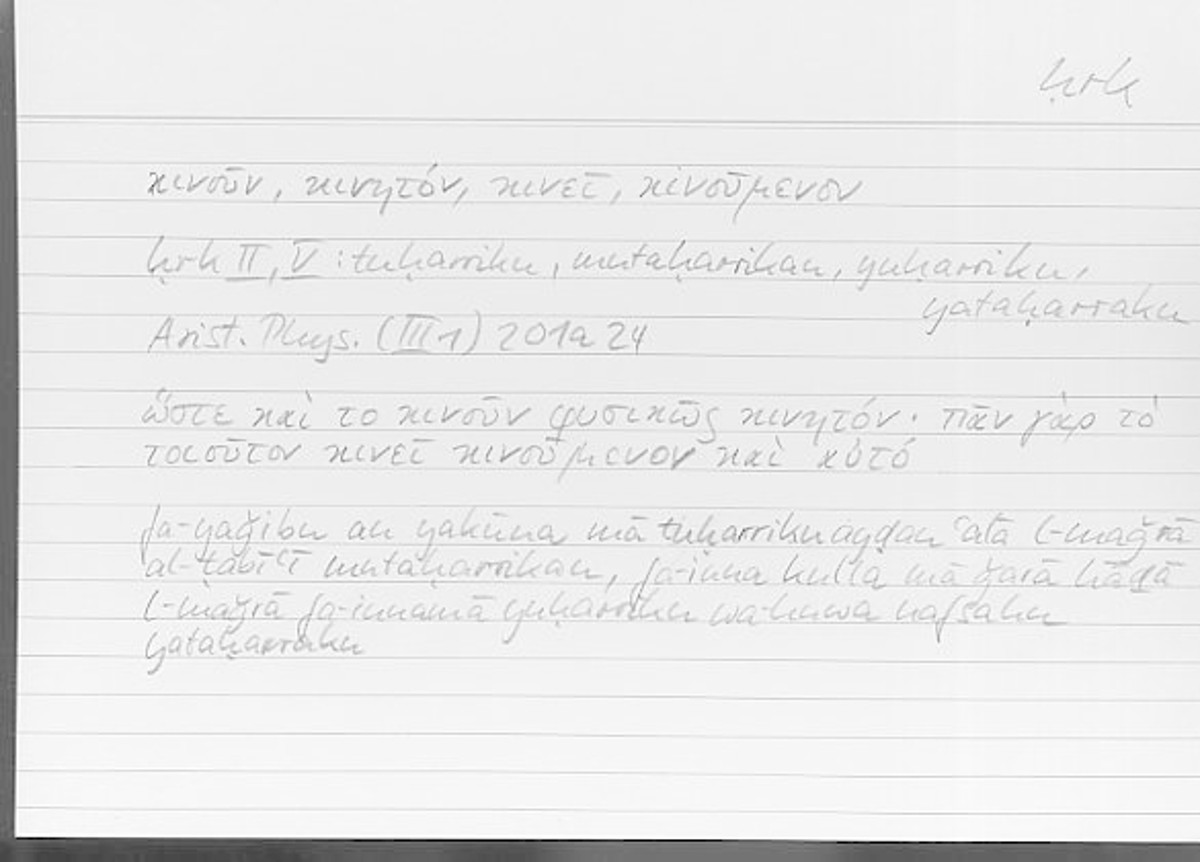 ḥrk
κινοῦν, κινητόν, κινεῖ, κινούμενον
ḥrk II, V : tuḥarriku, mutaḥarrikan, yuḥarriku,
yataḥarraku
Arist. Phys. (III 1) 201a 24
ὥστε καὶ το κινοῦν φυσικῶς κινητόν · πᾶν γὰρ τὸ
τοιοῦτον κινεῖ κινούμενον καὶ αὐτό
fa-yaǧibu an yakūna mā tuḥarriku ayḍan ʿalā l-maǧrā
al-ṭabīʿī mutaḥarrikan, fa-inna kulla mā ǧarā hāḏā
l-maǧrā fa-innamā yuḥarriku wa-huwa nafsahu
yataḥarraku